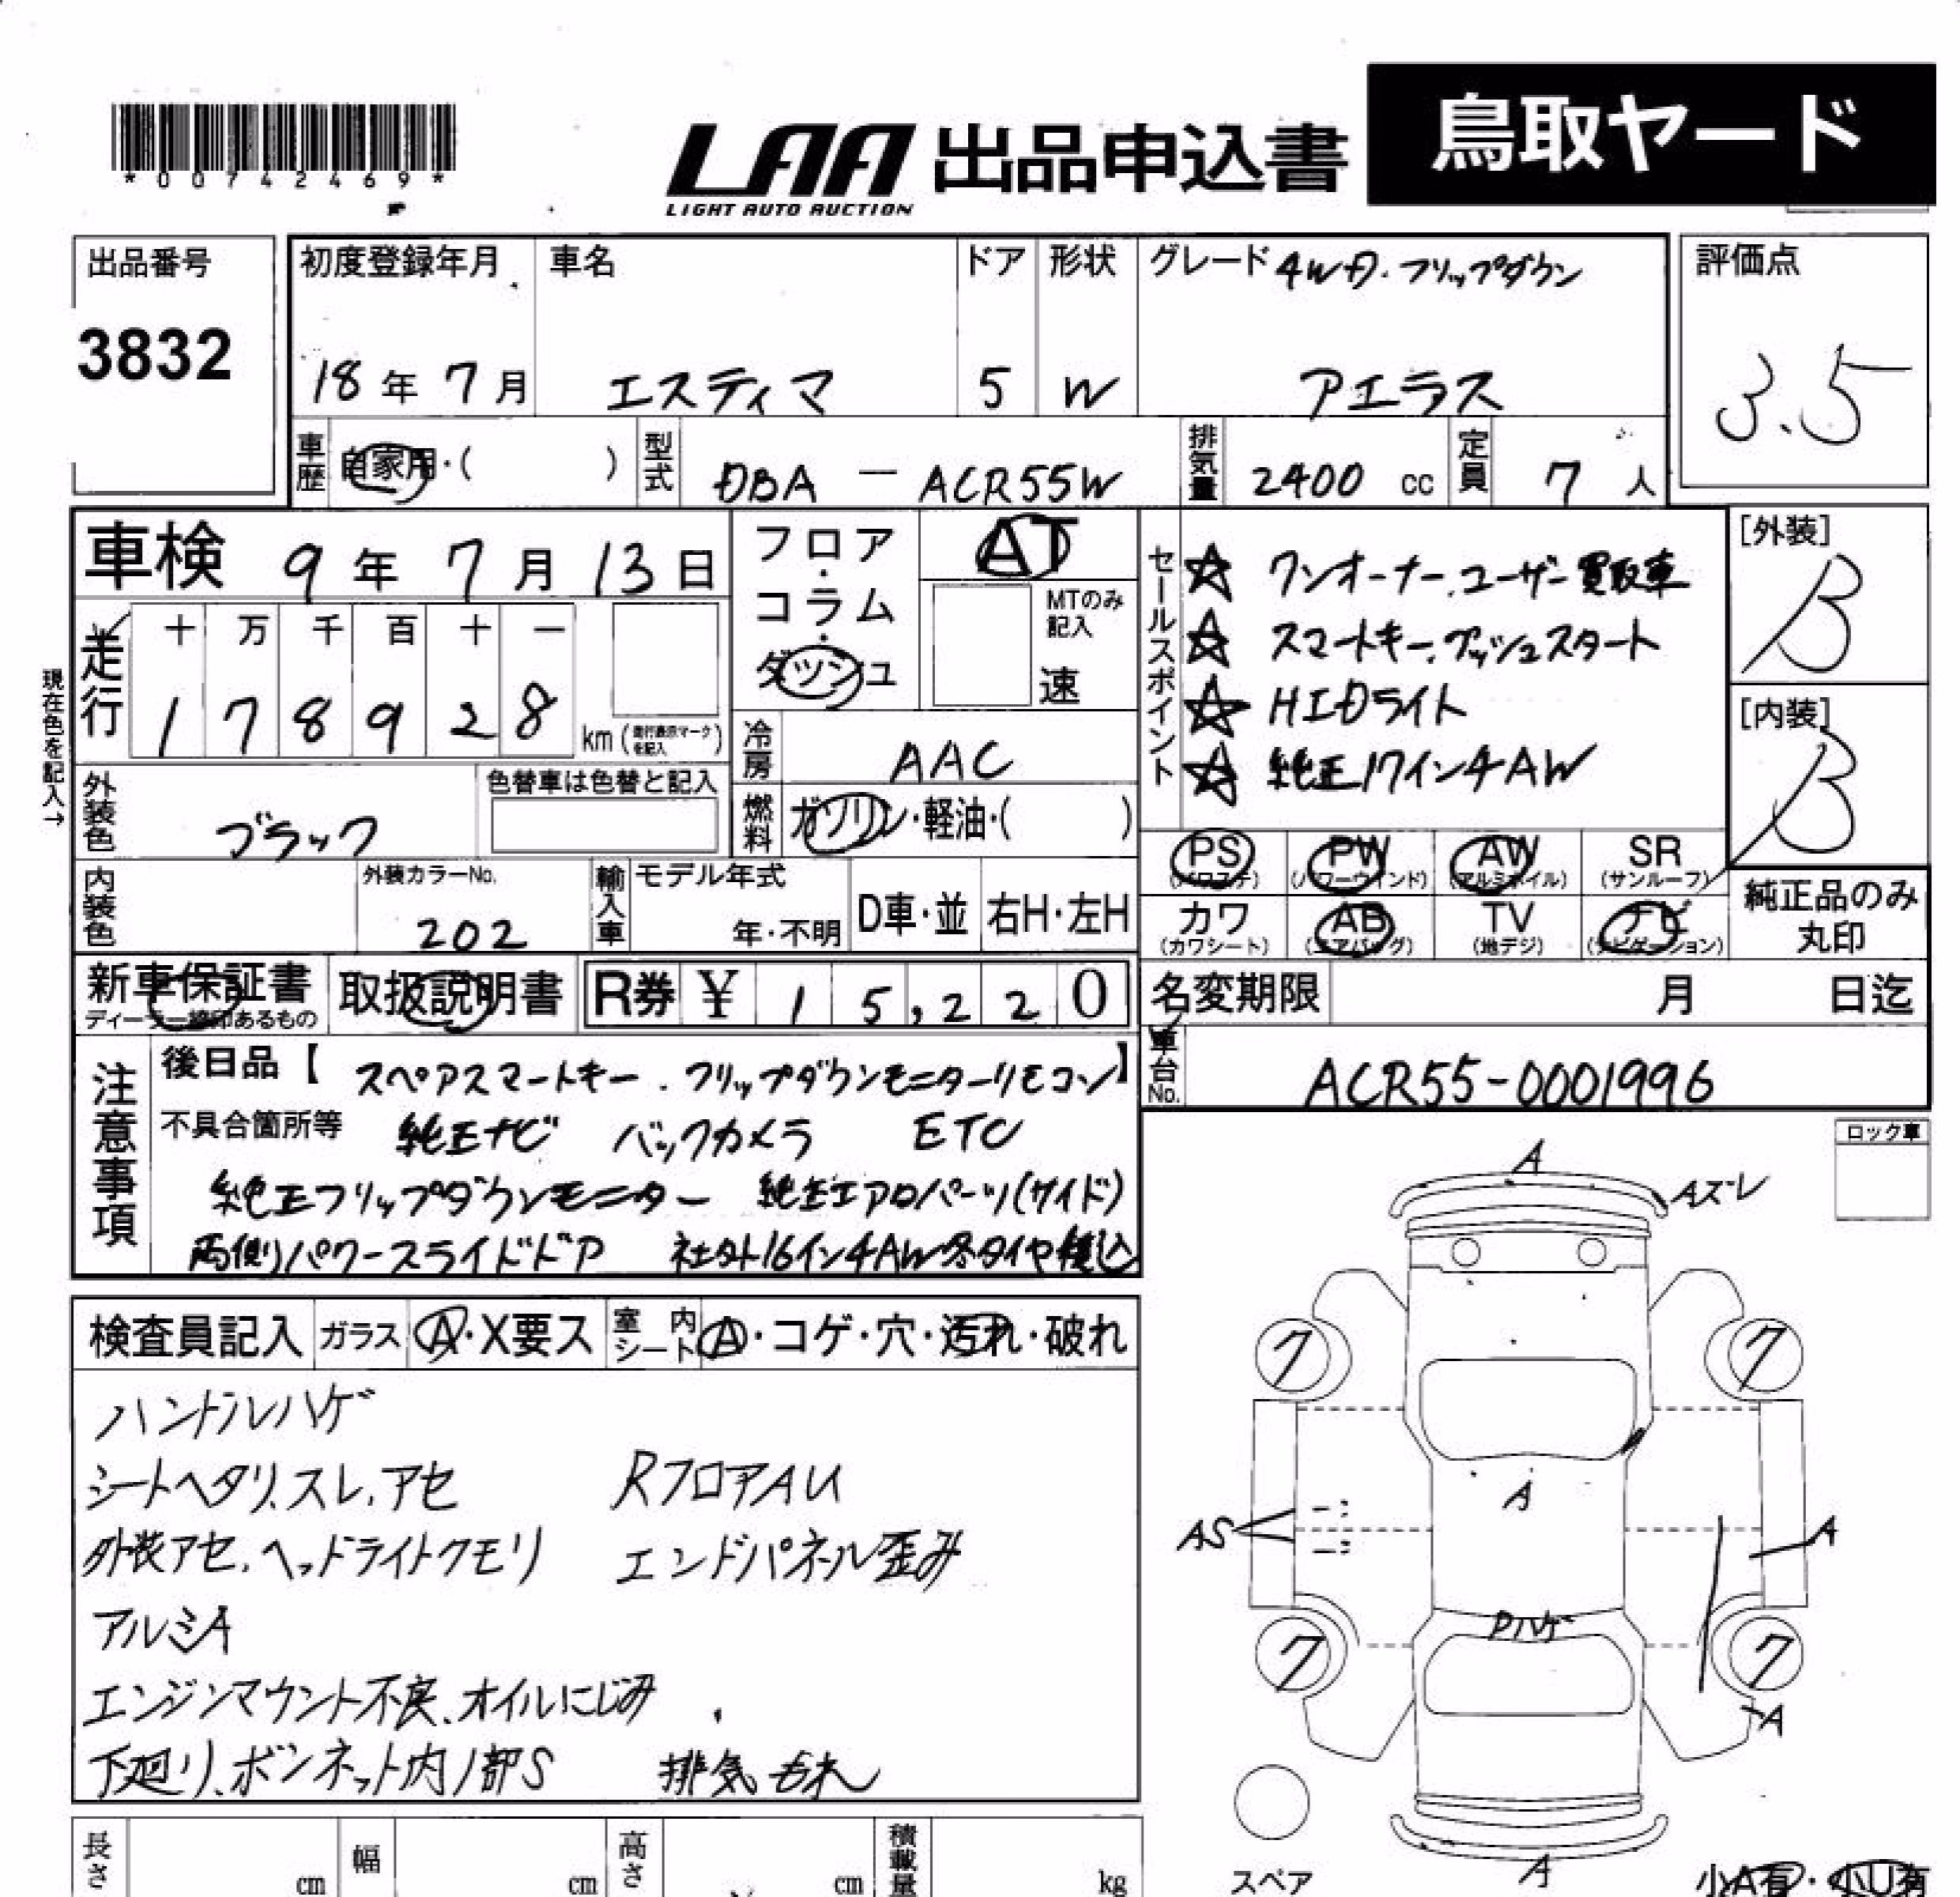 鳥取ヤード
*00742469*
LAA 出品申込書
LIGHT AUTO AUCTION
出品番号
3832
初度登録年月
18年 7月
車名
エスティマ
ドア
5
形状
W
グレード 4WD・フリップダウン
アエラス
評価点
3.5
車歴 自家用・( )
型式 DBA — ACR55W
排気量 2400 cc
定員 7 人
車検 9年 7月 13日
フロア・コラム・ダッシュ
AT
MTのみ記入
速
セールスポイント
☆ ワンオーナー、ユーザー買取車
☆ スマートキー、プッシュスタート
☆ HIDライト
☆ 純正17インチAW
[外装]
B
[内装]
B
現在色を記入→
走行
十 万 千 百 十 一
1 7 8 9 2 8 km (走行表示マークを記入)
冷房 AAC
外装色 ブラック
色替車は色替と記入
燃料 ガソリン・軽油・( )
内装色
外装カラーNo.
202
輸入車 モデル年式
年・不明
D車・並
右H・左H
PS (パワステ)
PW (パワーウインド)
AW (アルミホイル)
SR (サンルーフ)
カワ (カワシート)
AB (エアバッグ)
TV (地デジ)
ナビ (ナビゲーション)
純正品のみ丸印
新車保証書
ディーラー捺印あるもの
取扱説明書
R券 ¥ 15,220
名変期限 月 日迄
車台No. ACR55-0001996
注意事項
後日品【スペアスマートキー、フリップダウンモニターリモコン】
不具合箇所等 純正ナビ バックカメラ ETC
純正フリップダウンモニター 純正エアロパーツ(サイド)
両側パワースライドドア 社外16インチAW冬タイヤ積込
ロック車
検査員記入 ガラス A・X要ス 室内シート A・コゲ・穴・汚れ・破れ
ハンドルハゲ
シートヘタリ、スレ、アセ RフロアAU
外装アセ、ヘッドライトクモリ エンドパネル歪み
アルミA
エンジンマウント不良、オイルにじみ
下廻り、ボンネット内ノ部S 排気もれ
A
Aズレ
7
7
A
AS
A
Pハゲ
7
7
A
A
スペア
小A有・小U有
長さ cm
幅 cm
高さ cm
積載量 kg